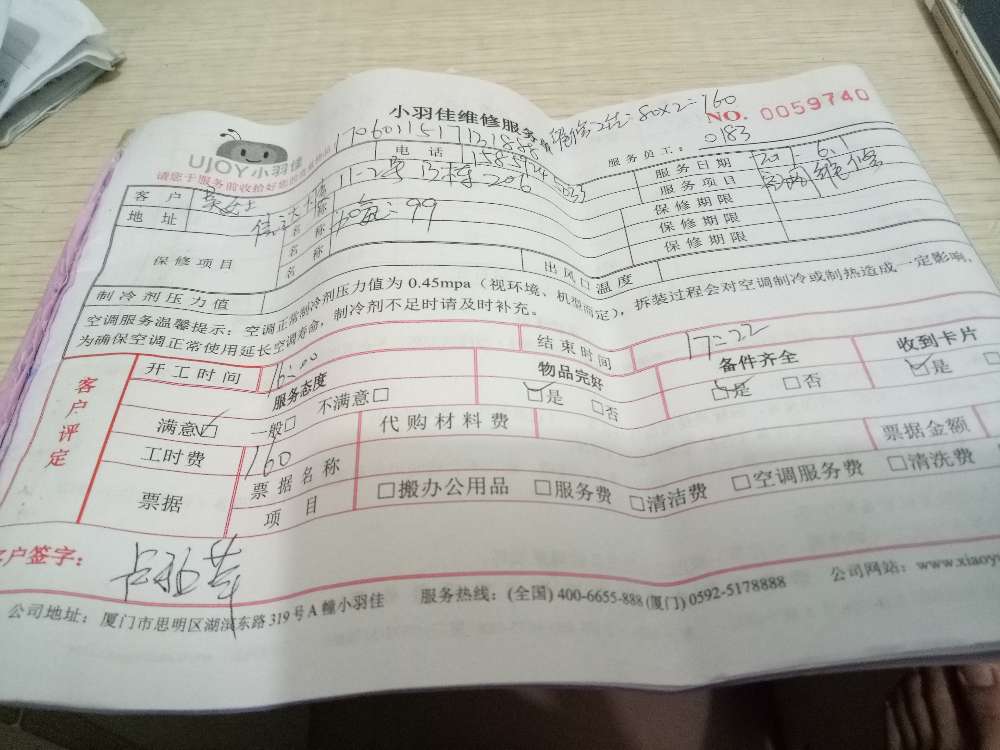 小羽佳维修服务
NO. 0059740
80×2=160
UJOY小羽佳
0183
服务员工：
请您于服务前收拾好您的贵重物品
电话
服务日期
客户
11-2号
206
服务项目
地址
名称
99
保修期限
名称
保修期限
保修项目
名称
保修期限
制冷剂压力值
出风口温度
空调服务温馨提示：空调正常制冷剂压力值为 0.45mpa（视环境、机型而定），拆装过程会对空调制冷或制热造成一定影响，
为确保空调正常使用延长空调寿命，制冷剂不足时请及时补充。
客户评定
开工时间
16:00
结束时间
17:22
服务态度
物品完好
备件齐全
收到卡片
满意☑ 一般□ 不满意□
☑是 □否
☑是 □否
☑是
工时费
160
代购材料费
票据
票据名称
票据金额
项目
□搬办公用品 □服务费 □清洁费 □空调服务费 □清洗费
客户签字：
公司地址：厦门市思明区湖滨东路319号A幢小羽佳 服务热线：(全国) 400-6655-888 (厦门) 0592-5178888 公司网站：www.xiaoyu